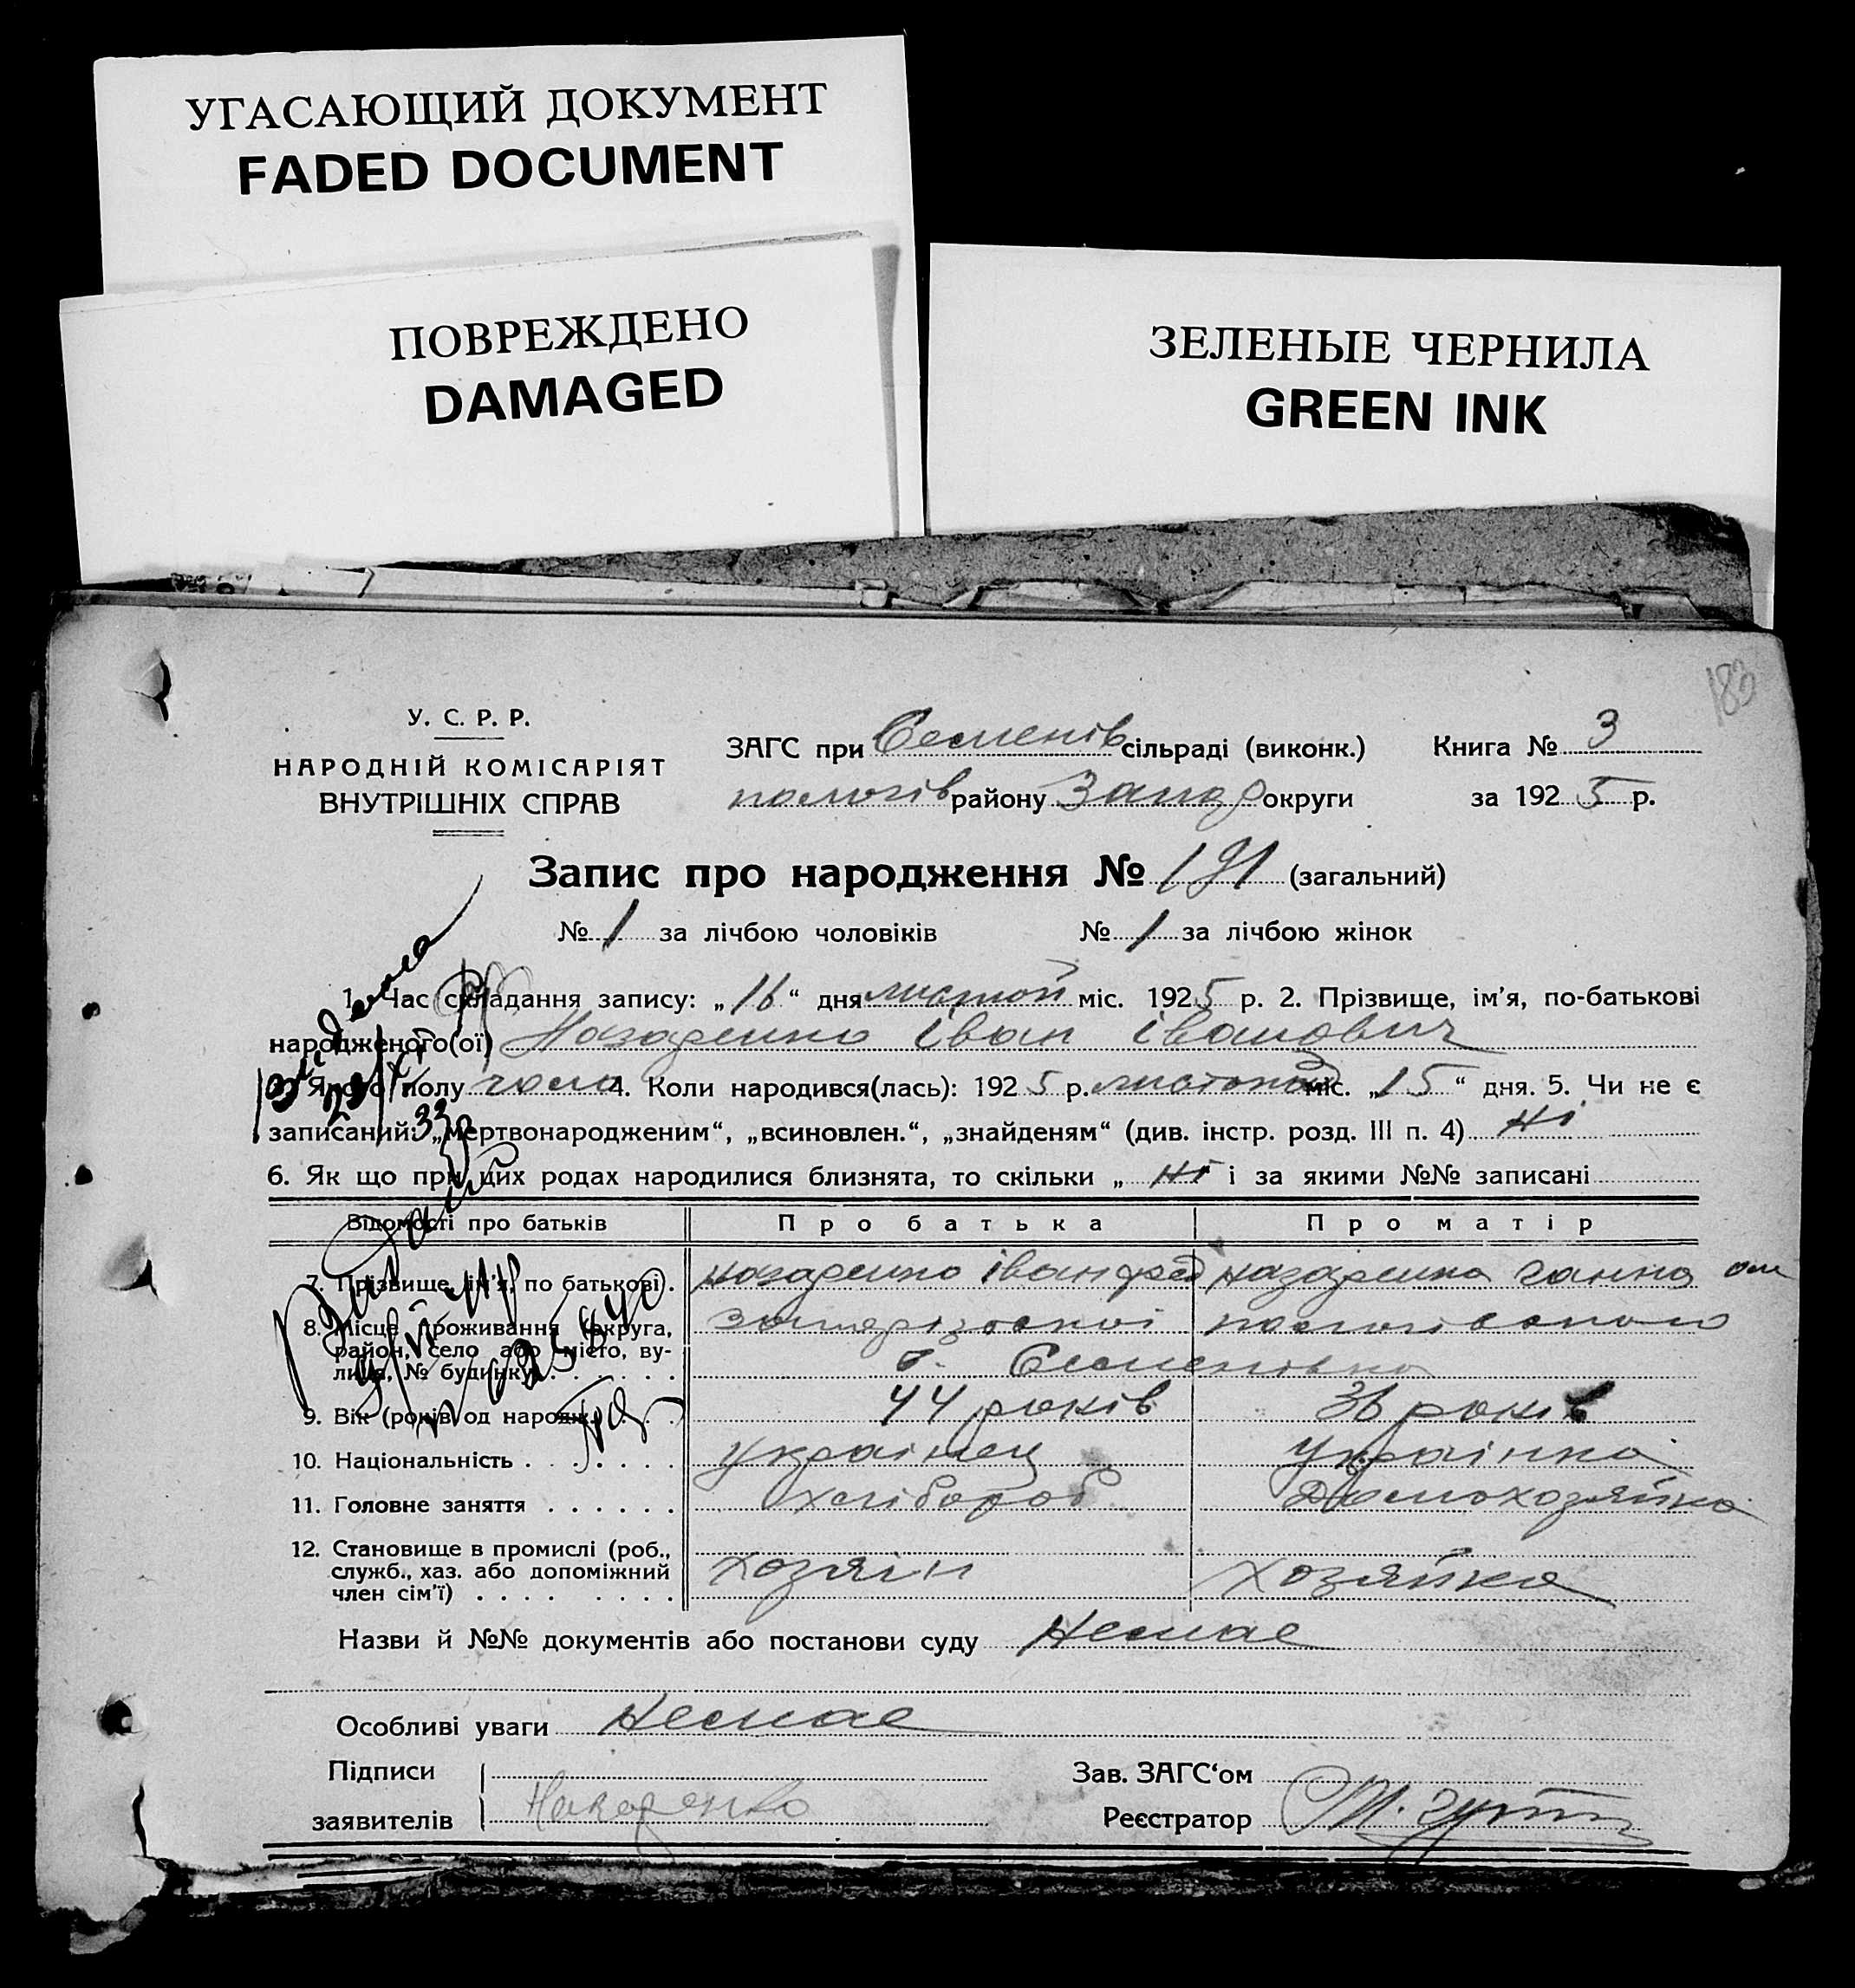 УГАСАЮЩИЙ ДОКУМЕНТ
FADED DOCUMENT
ПОВРЕЖДЕНО
DAMAGED
ЗЕЛЕНЫЕ ЧЕРНИЛА
GREEN INK
183
У. С. Р. Р.
НАРОДНІЙ КОМІСАРІЯТ
ВНУТРІШНІХ СПРАВ
ЗАГС при Семенів сільраді (виконк.) Книга № 3
пологів району Запор округи за 1925 р.
Запис про народження № 191 (загальний)
№ 1 за лічбою чоловіків № 1 за лічбою жінок
1. Час складання запису: „16“ дня листоп міс. 1925 р. 2. Прізвище, ім'я, по-батькові
народженого(ої) Назаренко Іван Іванович
Якого полу чоло 4. Коли народився(лась): 1925 р. листопад міс. „15“ дня. 5. Чи не є
записаний: „мертвонародженим“, „всиновлен.“, „знайденям“ (див. інстр. розд. III п. 4) ні
6. Як що при цих родах народилися близнята, то скільки „ ні і за якими №№ записані
Відомості про батьків Про батька Про матір
7. Прізвище, ім'я, по батькові. назаренко іван назаренко ганна
8. Місце проживання (округа, запорізоскої пологівского
район, село або місто, ву-
лиця, № будинку) с. Семенівка
9. Вік (років од народж.) 44 років 36 років
10. Національність українец українка
11. Головне заняття хлібороб Домохозяйка
12. Становище в промислі (роб.,
служб., хаз. або допоміжний хозяїн хозяйка
член сім'ї)
Назви й №№ документів або постанови суду Немае
Особливі уваги Немае
Підписи Зав. ЗАГС'ом
заявителів Назаренко Реєстратор